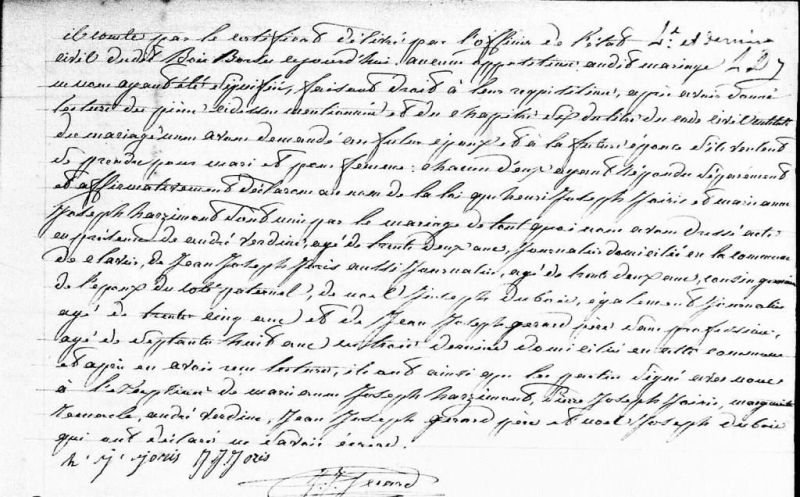 il conste par le certificat délivré par l'officier de l'état 4e et dernier
civil dudit Bois Borsu ce jourd'hui, aucune opposition audit mariage 227
ne nous ayant été signifiée, faisant droit à leur réquisition, après avoir donné
lecture des pièces ci dessus mentionnées et du chapitre six du titre du code civil intitulé
du mariage nous avons demandé au futur époux et à la future épouse s'ils veulent
se prendre pour mari et pour femme: chacun d'eux ayant répondu séparément
et affirmativement déclarons au nom de la loi que henri Joseph Joiris et marie anne
Joseph harzimont sont unis par le mariage de tout quoi nous avons dressé acte
en présence de andré verdin, agé de trente deux ans, Journalier domicilié en la commune
de clavier, de Jean Joseph Joris aussi Journalier, agé de trente deux ans, cousin germain
de l'époux du coté paternel, de noel Joseph dubois, également Journalier
agé de trente cinq ans et de Jean Joseph gerard père sans profession,
agé de septante huit ans les trois derniers domiciliés en cette commune
et après en avoir reçu lecture, ils ont ainsi que les parties signé avec nous
à l'exception de marie anne Joseph harzimont, Joseph Joiris, marguerite
andré verdin, Jean Joseph gerard père et noel Joseph dubois
qui ont déclaré ne savoir écrire.
h. j. joris J J Joris
Gerard